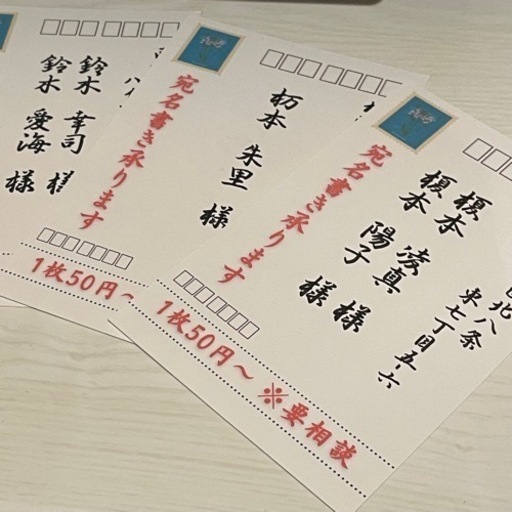 北八条
東七丁目五-六
榎本 法真 様
榎本 陽子 様
宛名書き承ります
1枚50円〜 ※要相談
朸本 朱里 様
宛名書き承ります
1枚50円〜
鈴木 幸司 様
鈴木 愛海 様